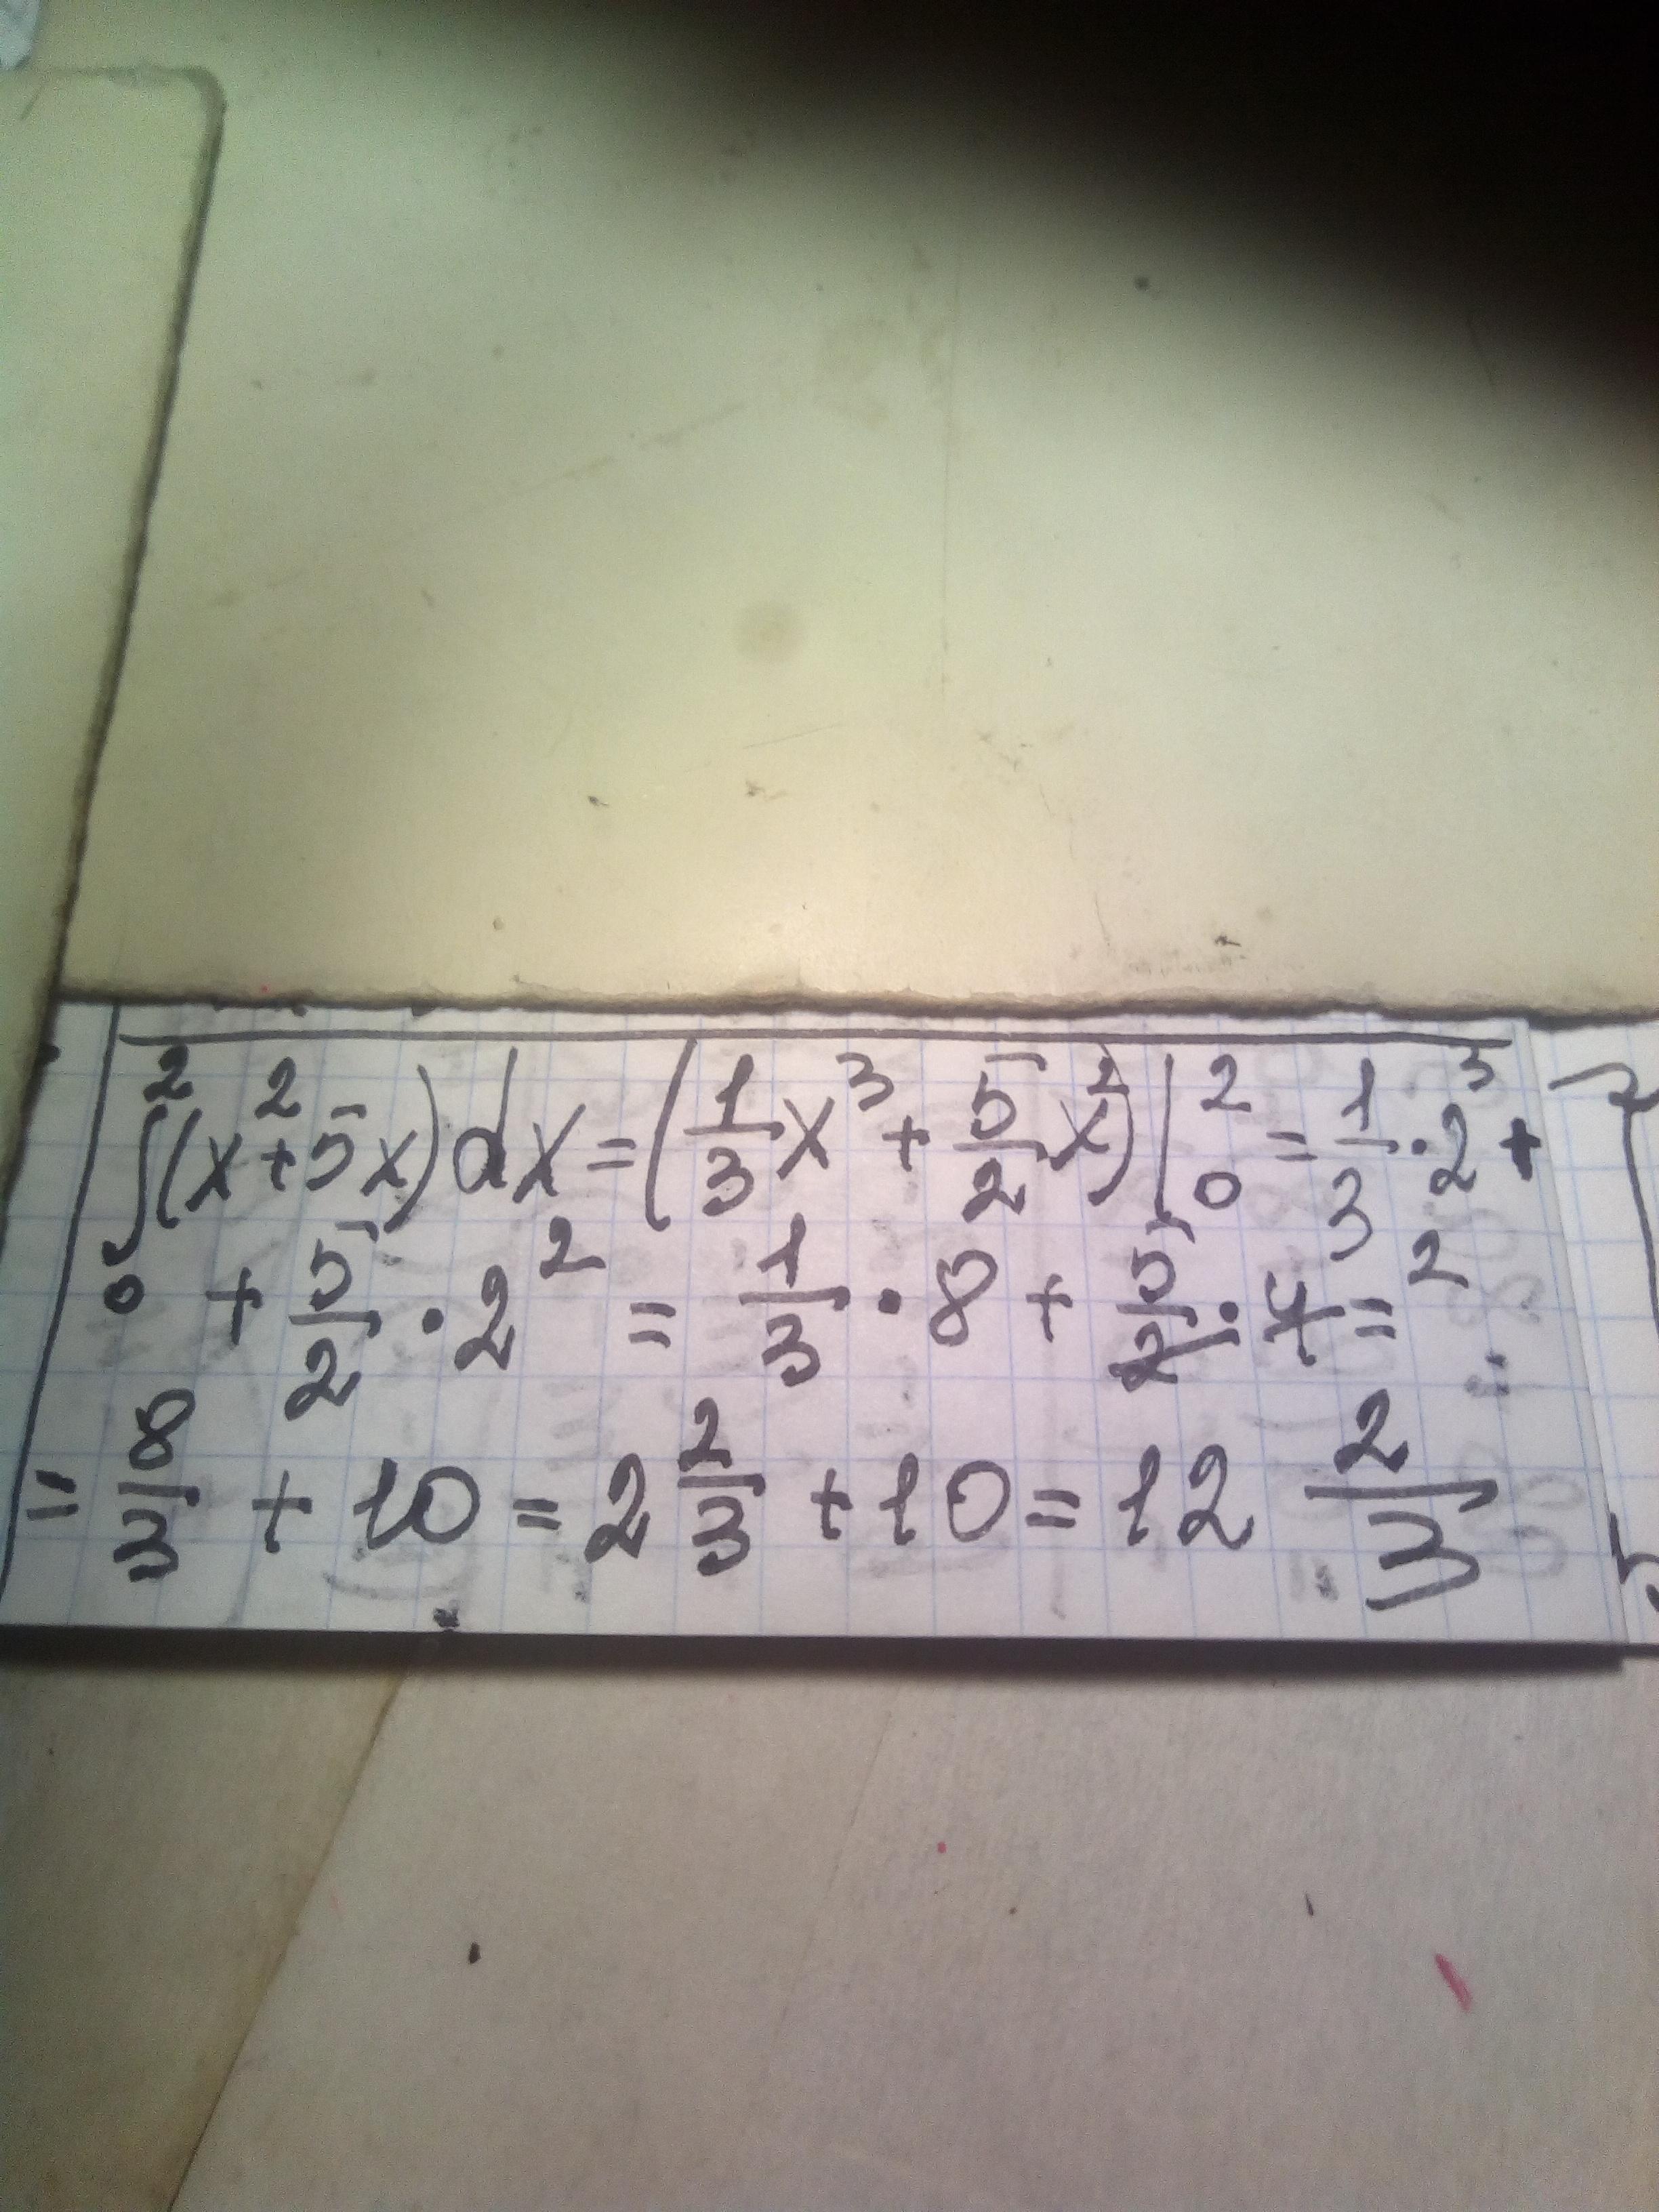 ∫₀²(x²+5x)dx=(1/3 x³+5/2 x²)|₀²=1/3·2³+
+5/2·2²=1/3·8+5/2·4²=
=8/3+10=2 2/3+10=12 2/3